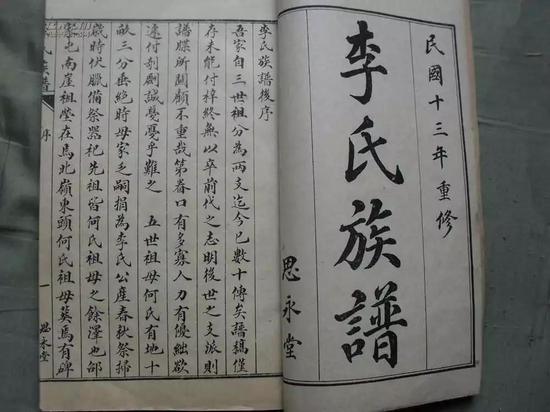 民國十三年重修
李氏族譜
思永堂
李氏族譜後序
吾家自三世祖分為兩支迄今已數十傳矣譜稿僅
存未能付梓終無以卒前代之志明後世之支派則
譜牒所關顧不重哉第眷口有多寡人力有優絀欲
速付剞劂誠戛戛乎難之 五世祖何氏有地十
畝三分垂絕時母家乏嗣捐為李氏公產春秋祭掃
歲時伏臘備祭器祀先祖皆何氏祖母之餘澤也邵
家屯南崖祖塋在馬北嶺東頭何氏祖母葬焉有碑
氏族譜
序
一
思永堂